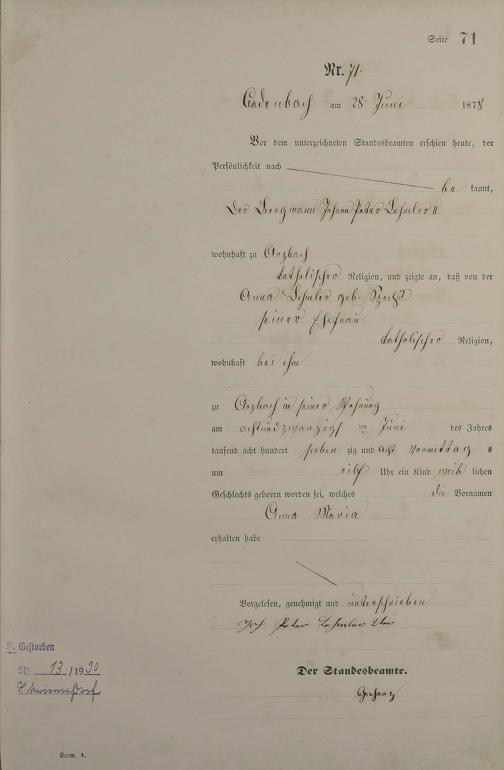 Seite 71
Nr. 71.
Cadenbach am 28 Juni 1878
Vor dem unterzeichneten Standesbeamten erschien heute, der
Persönlichkeit nach
be kannt,
der Bergmann Johann Peter Lehmler II
wohnhaft zu Arzbach
katholischer Religion, und zeigte an, daß von der
Anna Lehmler geb.
seiner Ehefrau
katholischer Religion,
wohnhaft bei ihm
zu Arzbach in seiner Wohnung
am achtundzwanzigst en Juni des Jahres
tausend acht hundert sieben zig und acht Vormittag s
um eilf Uhr ein Kind weib lichen
Geschlechts geboren worden sei, welches die Vornamen
Anna Maria
erhalten habe
Vorgelesen, genehmigt und unterschrieben
Joh Peter Lehmler 2ter
Der Standesbeamte.
Gestorben
Nr. 13 / 1930
Form. A.